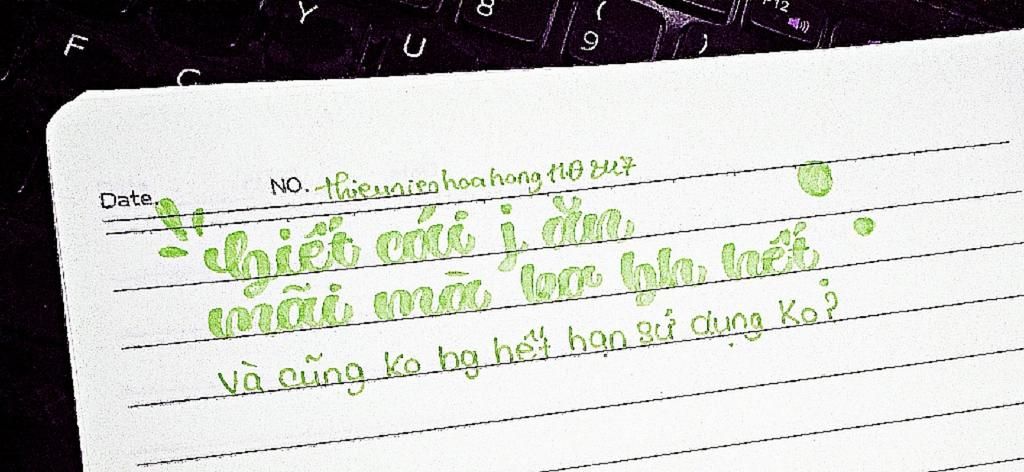 F Y U 8 ( 9 ) F12
C
Date. NO. thieunieohoahong110 847
biết cái j ăn
mãi mà ko bh hết
và cũng ko bg hết hạn sử dụng ko?